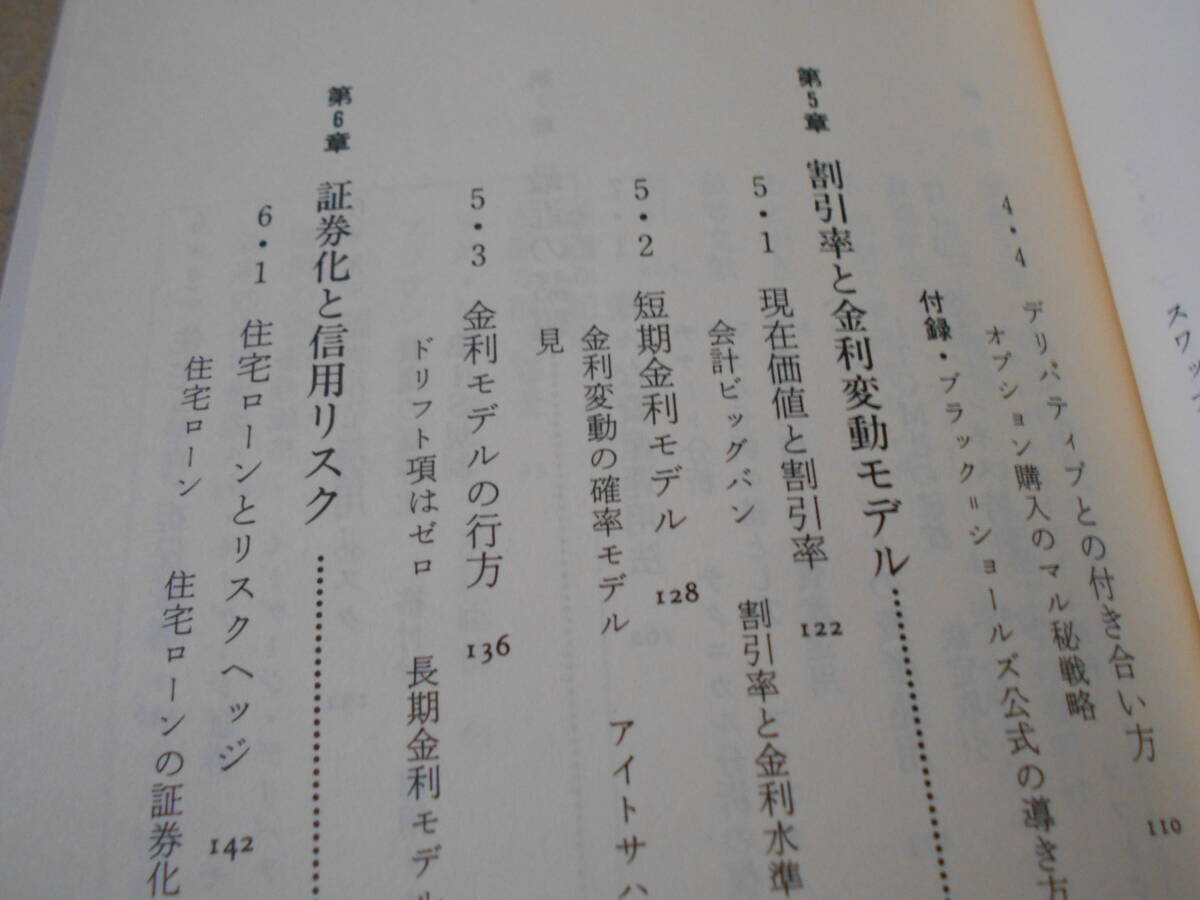 スワッ
4・4 デリバティブとの付き合い方 110
オプション購入のマル秘戦略
付録・ブラック＝ショールズ公式の導き方
第5章 割引率と金利変動モデル
5・1 現在価値と割引率 122
会計ビッグバン 割引率と金利水準
5・2 短期金利モデル 128
金利変動の確率モデル アイトサハ
見
5・3 金利モデルの行方 136
ドリフト項はゼロ 長期金利モデル
第6章 証券化と信用リスク
6・1 住宅ローンとリスクヘッジ 142
住宅ローン 住宅ローンの証券化